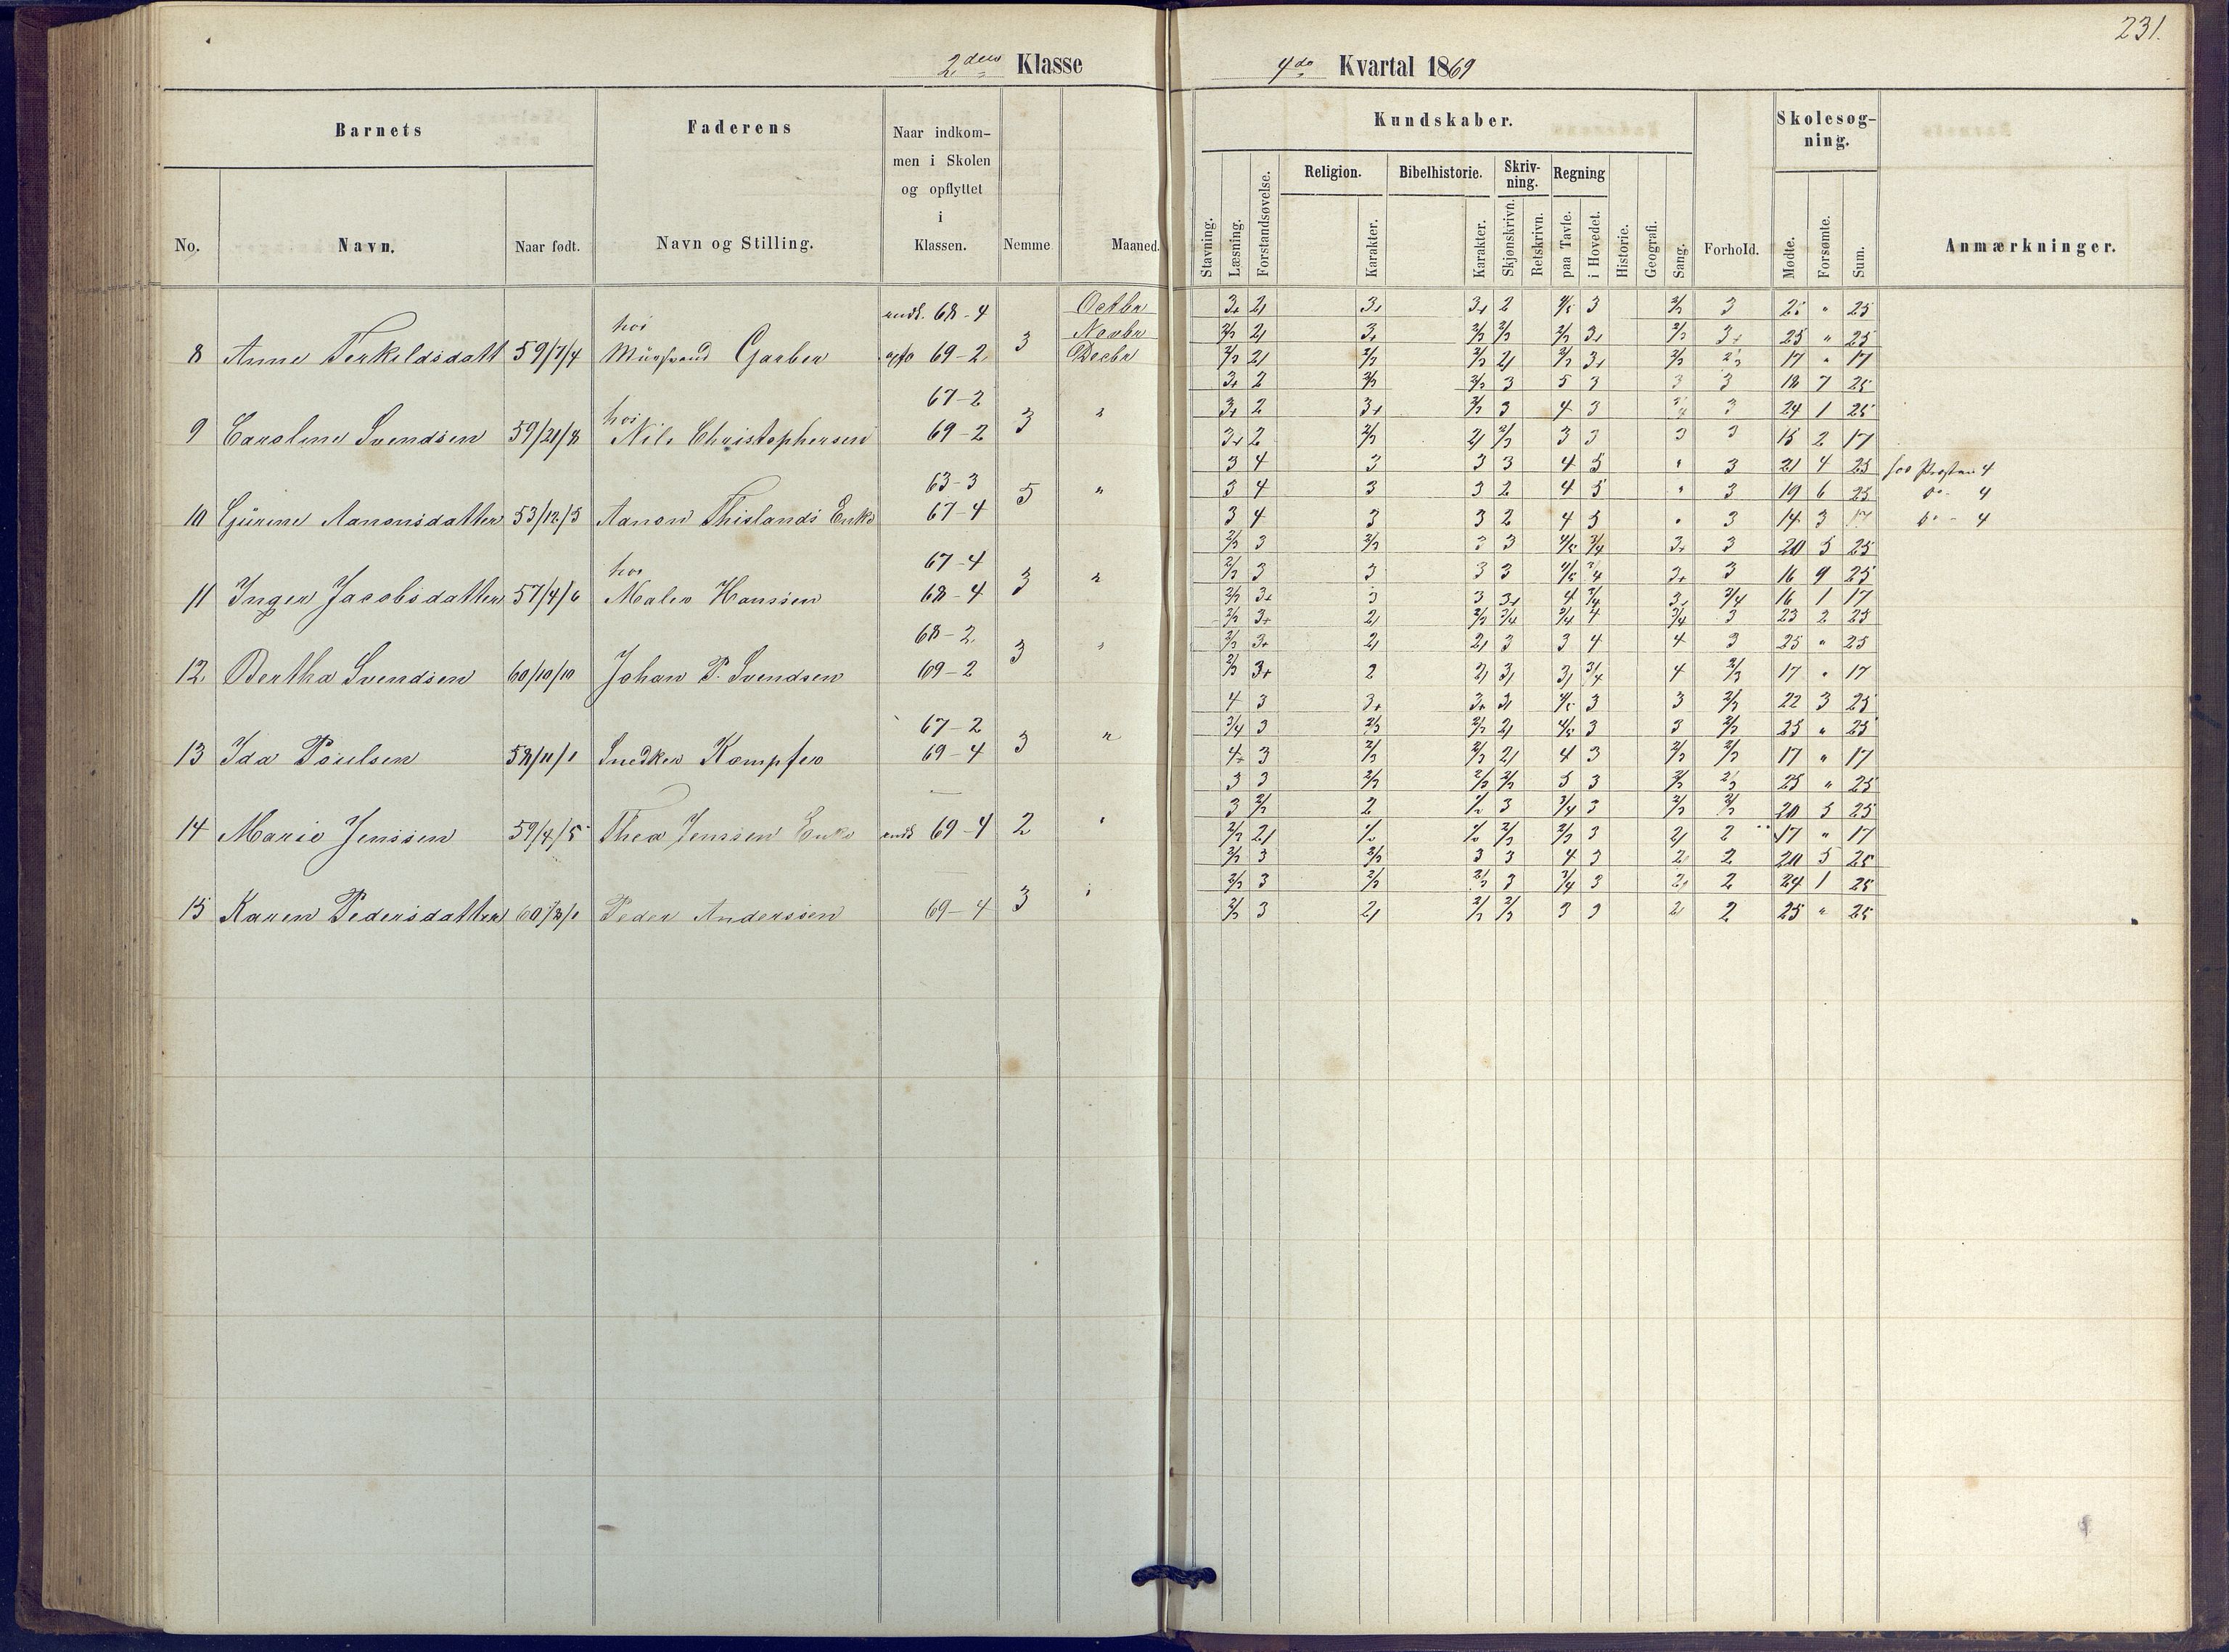 231.
2den Klasse
4de Kvartal 1869
Barnets
Faderens
Naar indkom-
men i Skolen
og opflyttet
i
Klassen.
No.
Navn.
Naar født.
Navn og Stilling.
Nemme
Maaned.
Kundskaber.
Skolesøg-
ning.
Religion.
Bibelhistorie.
Skriv-
ning.
Regning
Stavning.
Læsning.
Forstandsøvelse.
Karakter.
Karakter.
Skjønskrivn.
Retskrivn.
paa Tavle.
i Hovedet.
Historie.
Geografi.
Sang.
Forhold.
Mødte.
Forsømte.
Sum.
Anmærkninger.
indk. 68-4 Octbr 3+ 21 3+ 3+ 2 4/5 3 2/3 3 25 " 25
hos Novbr 2/3 21 3+ 2/3 2/3 2/3 3+ 2/3 3+ 25 " 25
8 Anne Terkildsdatt 59/7/4 Garber opfl 69-2 3 Decbr 2/3 21 2/3 2/3 21 2/3 3+ 2/3 2/3 17 " 17
67-2 3+ 2 2/3 2/3 3 5 3 3 3 18 7 25
hos 3+ 2 3+ 2/3 3 4 3 3/4 3 24 1 25
9 Caroline Svendsen 59/21/8 Nils Christophersen 69-2 3 " 3+ 2 2/3 21 2/3 3 3 3 3 15 2 17
63-3 3 4 3 3 3 4 5 " 3 21 4 25 for Præsten 4
3 4 3 3 2 4 5 " 3 19 6 25 do - 4
10 Gurine Aanonsdatter 53/12/5 Aanon Thislands Enke 67-4 5 " 3 4 3 3 2 4 5 " 3 14 3 17 do - 4
67-4 2/3 3 2/3 3 3 4/5 3/4 3+ 3 20 5 25
hos 2/3 3 3 3 3 4/5 3/4 3+ 3 16 9 25
11 Inger Jacobsdatter 57/4/6 Maler Hanssen 68-4 3 " 2/3 3+ 3 3 3+ 4 3/4 3+ 3/4 16 1 17
68-2 2/3 3+ 21 2/3 3/4 3/4 4 3/4 3 23 2 25
2/3 3+ 21 21 3 3 4 4 3 25 " 25
12 Bertha Svendsen 60/10/10 Johan P. Svendsen 69-2 3 " 2/3 3+ 2 21 31 31 3/4 4 2/3 17 " 17
67-2 4 3 3+ 3+ 31 4/5 3 3 2/3 22 3 25
3/4 3 2/3 2/3 21 4/5 3 3 2/3 25 " 25
13 Ida Poulsen 58/11/1 Snedker Kompfer 69-4 3 " 4+ 3 2/3 2/3 21 4 3 2/3 2/3 17 " 17
3 3 2/3 2/3 2/3 5 3 2/3 2/3 25 " 25
3 2/3 2 1/2 3 3/4 3 2/3 2/3 20 5 25
14 Marie Jenssen 59/4/5 Thea Jenssen Enke indk 69-4 2 " 2/3 21 1/2 1/2 2/3 2/3 3 21 2 17 " 17
2/3 3 2/3 3 3 4 3 2 2 20 5 25
2/3 3 2/3 2/3 3 3/4 3 2+ 2 24 1 25
15 Karen Pedersdatter Peder Anderssen 69-4 3 " 2/3 3 21 2/3 2/3 3 3 2 2 25 " 25